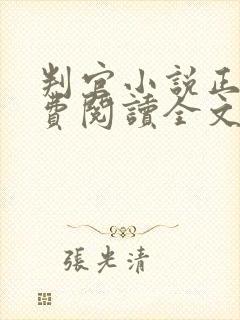 判官小說正
費閱讀全文
張光清